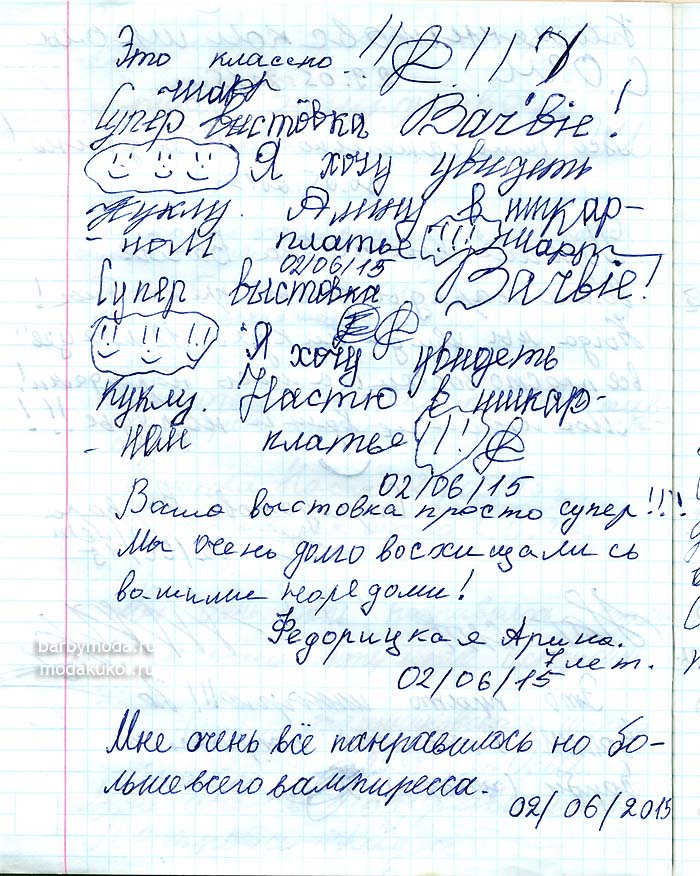 Это классно !! !!
шарр
Супер выстовка Barbie!
Я хочу увидеть
куклу. Алину в шикар-
-ном платье !!! шарр
02/06/15
Супер выстовка Barbie!
Я хочу увидеть
куклу. Настю в шикар-
- ном платье !!!
02/06/15
Ваша выстовка просто супер!!!
Мы очень долго восхищались
вашими нарядоми!
Федорицкая Арина.
7 лет.
02/06/15
barbymoda.ru
modakukol.ru
Мне очень всё панравилось но бо-
льшевсего вампиресса.
02/06/2015